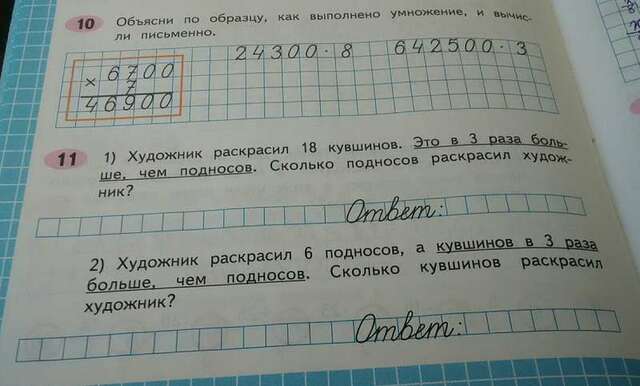 10 Объясни по образцу, как выполнено умножение, и вычис-
ли письменно.
24300·8 642500·3
× 6700
7
46900
11 1) Художник раскрасил 18 кувшинов. Это в 3 раза боль-
ше, чем подносов. Сколько подносов раскрасил худож-
ник?
Ответ:
2) Художник раскрасил 6 подносов, а кувшинов в 3 раза
больше, чем подносов. Сколько кувшинов раскрасил
художник?
Ответ: